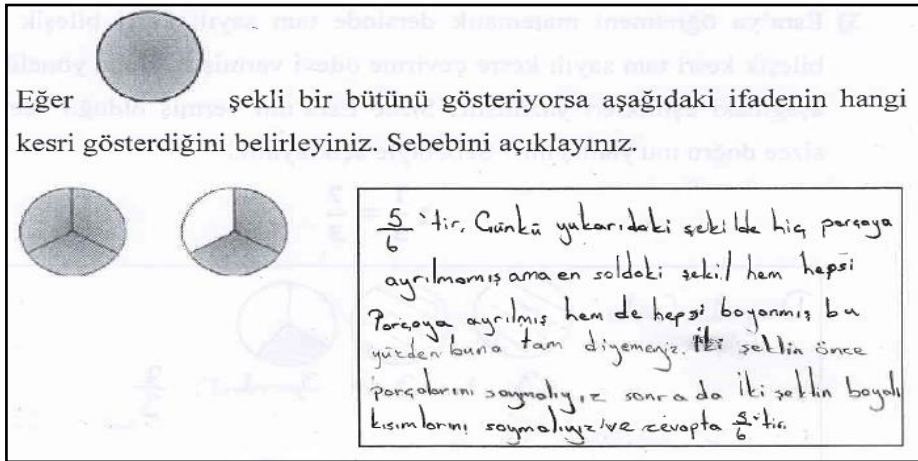 Eğer şekli bir bütünü gösteriyorsa aşağıdaki ifadenin hangi
kesri gösterdiğini belirleyiniz. Sebebini açıklayınız.
5/6'tir. Çünkü yukarıdaki şekilde hiç parçaya
ayrılmamış ama en soldaki şekil hem hepsi
Parçaya ayrılmış hem de hepsi boyanmış bu
yüzden buna tam diyemeyiz. İki şeklin önce
parçalarını saymalıyız sonra da iki şeklin boyalı
kısımlarını saymalıyız ve cevapta 5/6'tir.